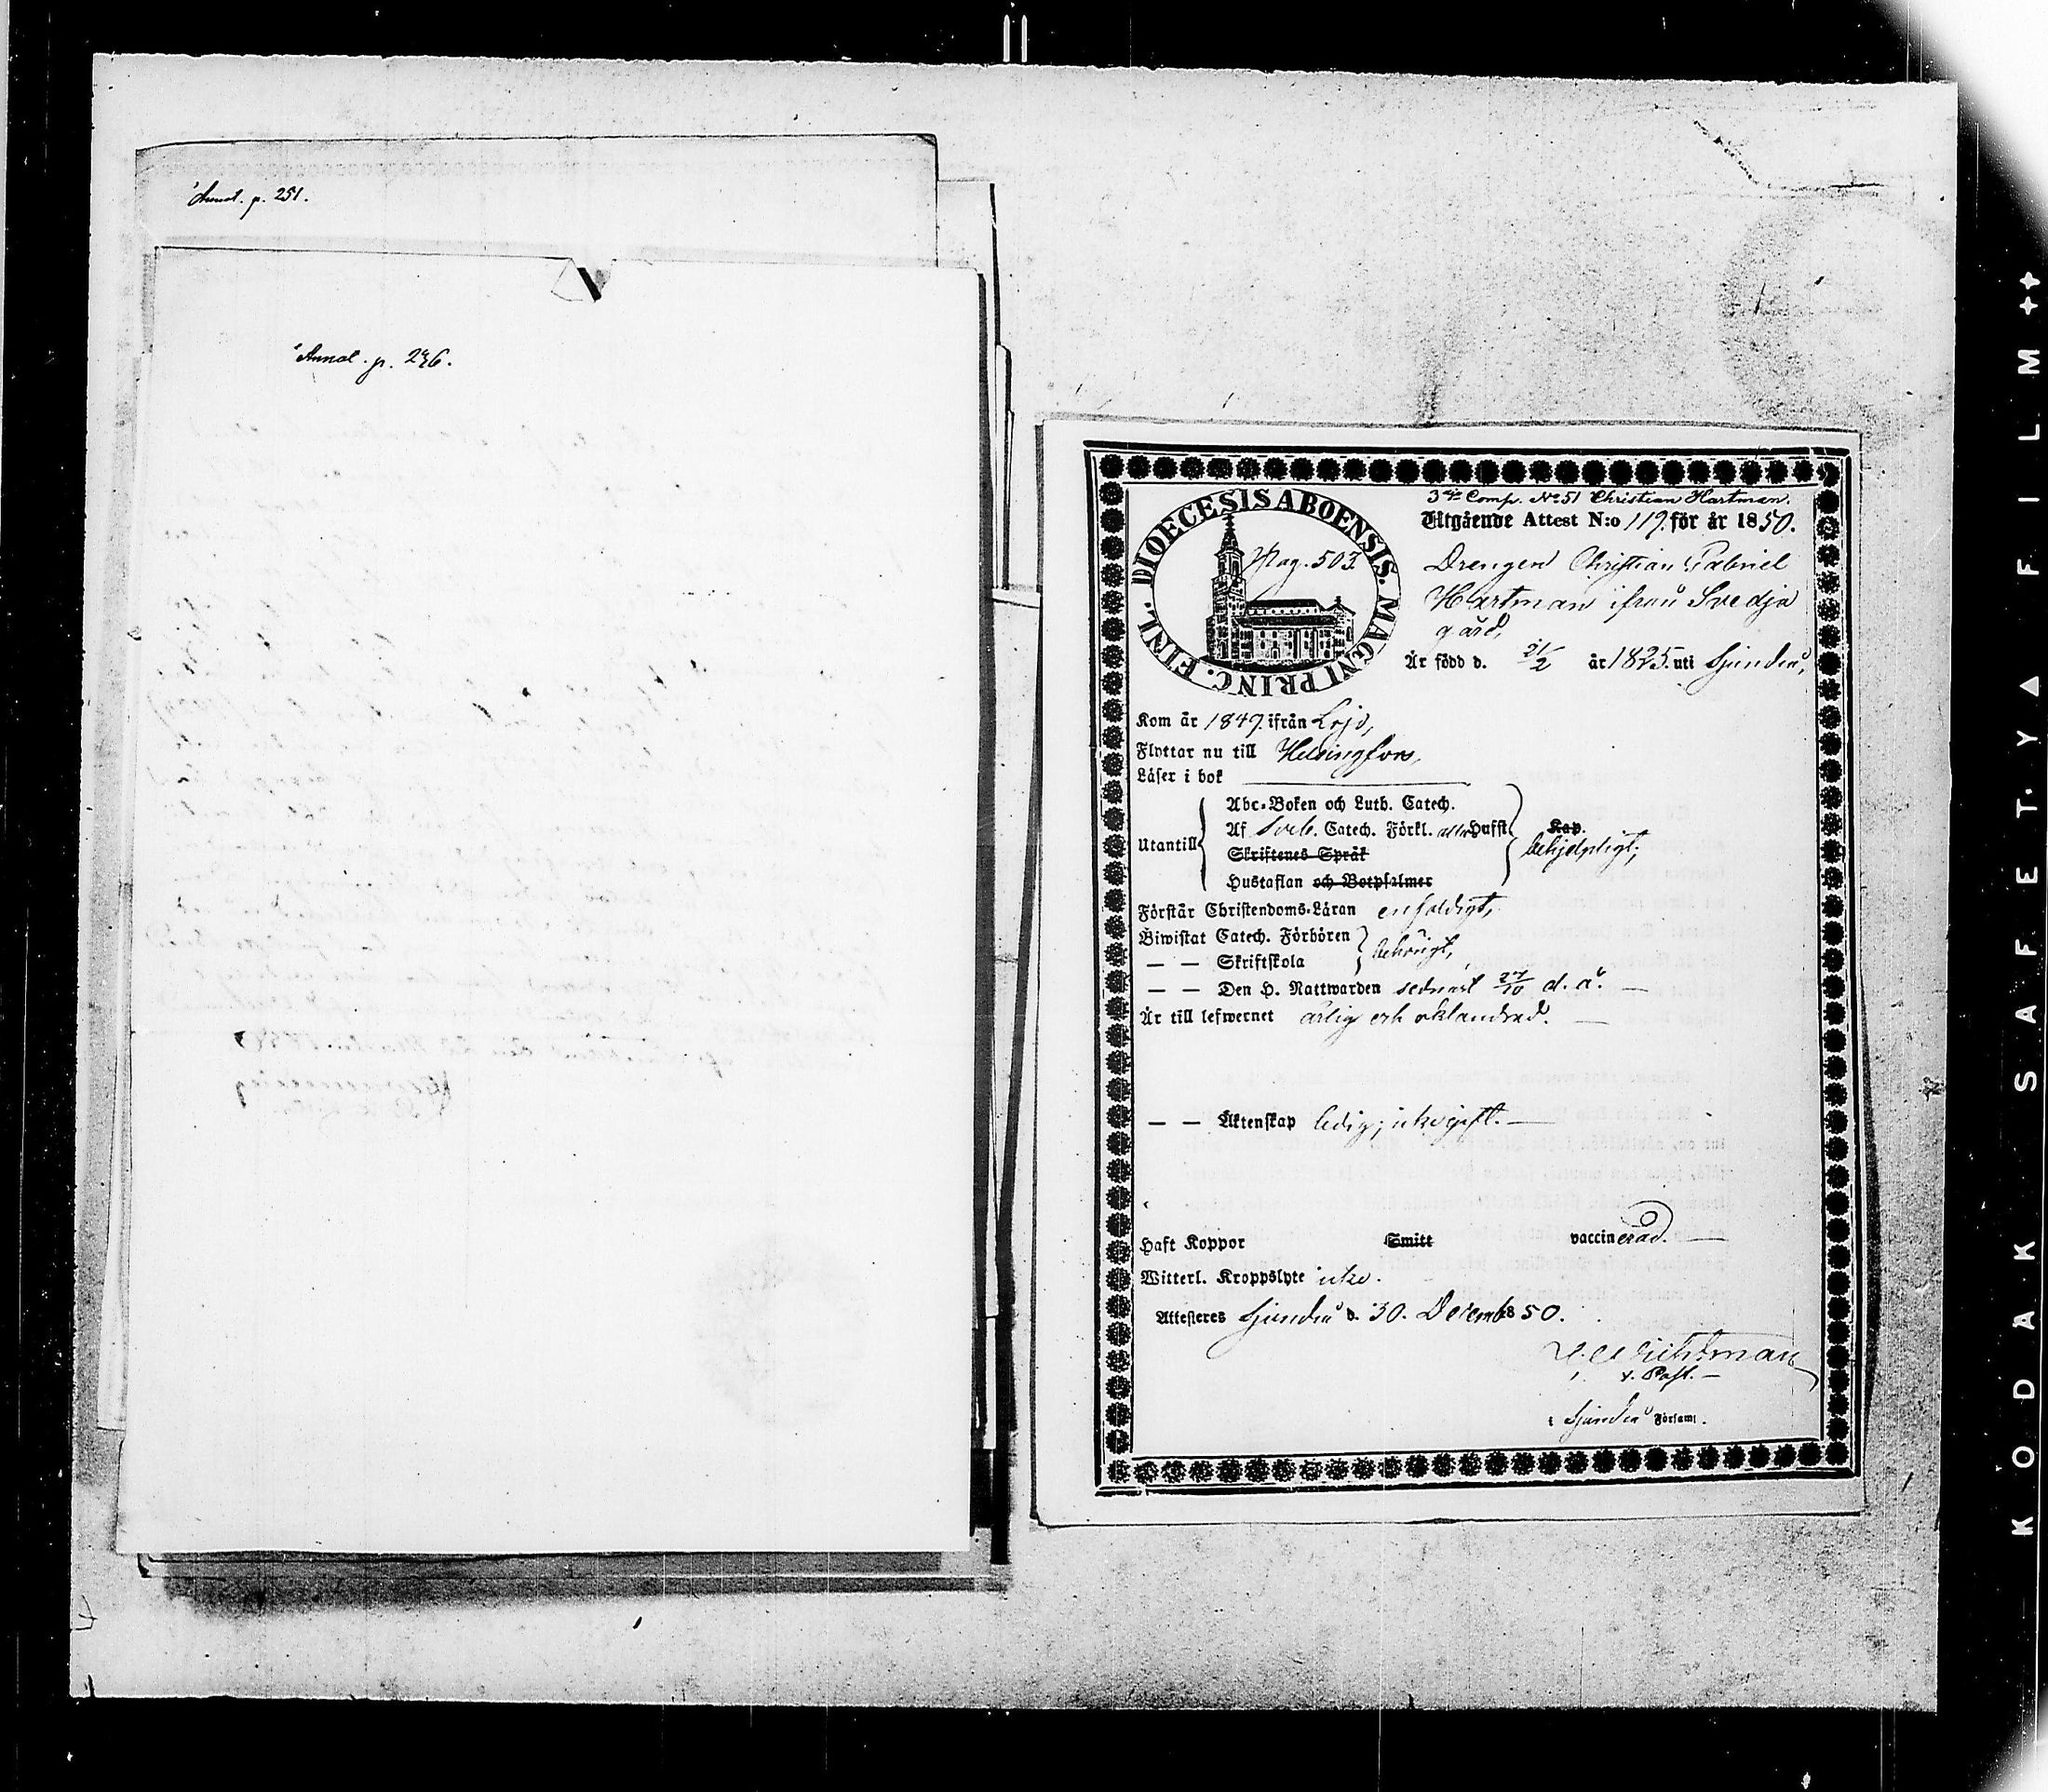 Annot. p. 251.
Annot. p. 246.
3die Comp. No 51 Christian Hartman.
Utgående Attest N:o 119. för år 1850.
DIOECESIS ABOENSIS. MAGNI PRINC. FINL.
Pag. 503.
Drengen Christian Gabriel
Hartman ifrån Svedja
gård,
Är född d. 21/2 år 1825. uti Sjundeå,
Kom år 1849. ifrån Lojo,
Flyttar nu till Helsingfors,
Läser i bok
Abc-Boken och Luth. Catech.
Af Sveb. Catech. Förkl. alla Hufst. Kap.
Utantill
Skriftenes Språk
behjelpligt,
Hustaflan och Botpsalmer
Förstår Christendoms-Läran enfaldigt,
Biwistat Catech. Förhören
behörigt,
— — Skriftskola
— — Den H. Nattwarden sednast 27/10 d. å. —
Är till lefwernet ärlig och oklandrad. —
— — Äktenskap ledig; icke gift. —
Haft Koppor Smitt vaccinerad. —
Witterl. Kroppslyte icke.
Attesteres Sjundeå d. 30. Decemb 1850.
v. Past. —
i Sjundeå Församl.
KODAK SAFETY ▲ FILM ++